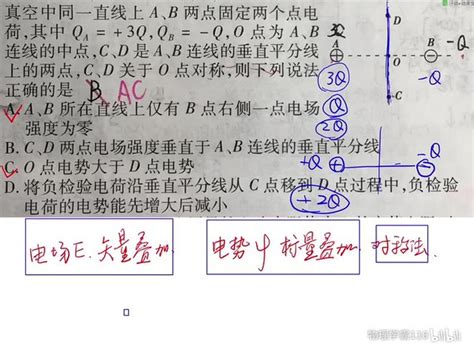 真空中同一直线上 A、B 两点固定两个点电
荷,其中 Q_A = +3Q,Q_B = -Q,O 点为 A、B
连线的中点,C、D 是 A、B 连线的垂直平分线
上的两点,C、D 关于 O 点对称,则下列说法
正确的是 B AC
A. A、B 所在直线上仅有 B 点右侧一点电场
强度为零
B. C、D 两点电场强度垂直于 A、B 连线的垂直平分线
C. O 点电势大于 D 点电势
D. 将负检验电荷沿垂直平分线从 C 点移到 D 点过程中,负检验
电荷的电势能先增大后减小
3Q
A
D
B
-Q
3Q
-Q
C
Q
2Q
+Q
+
-Q
+2Q
电场E.矢量叠加.
电势φ标量叠加.
对称法.